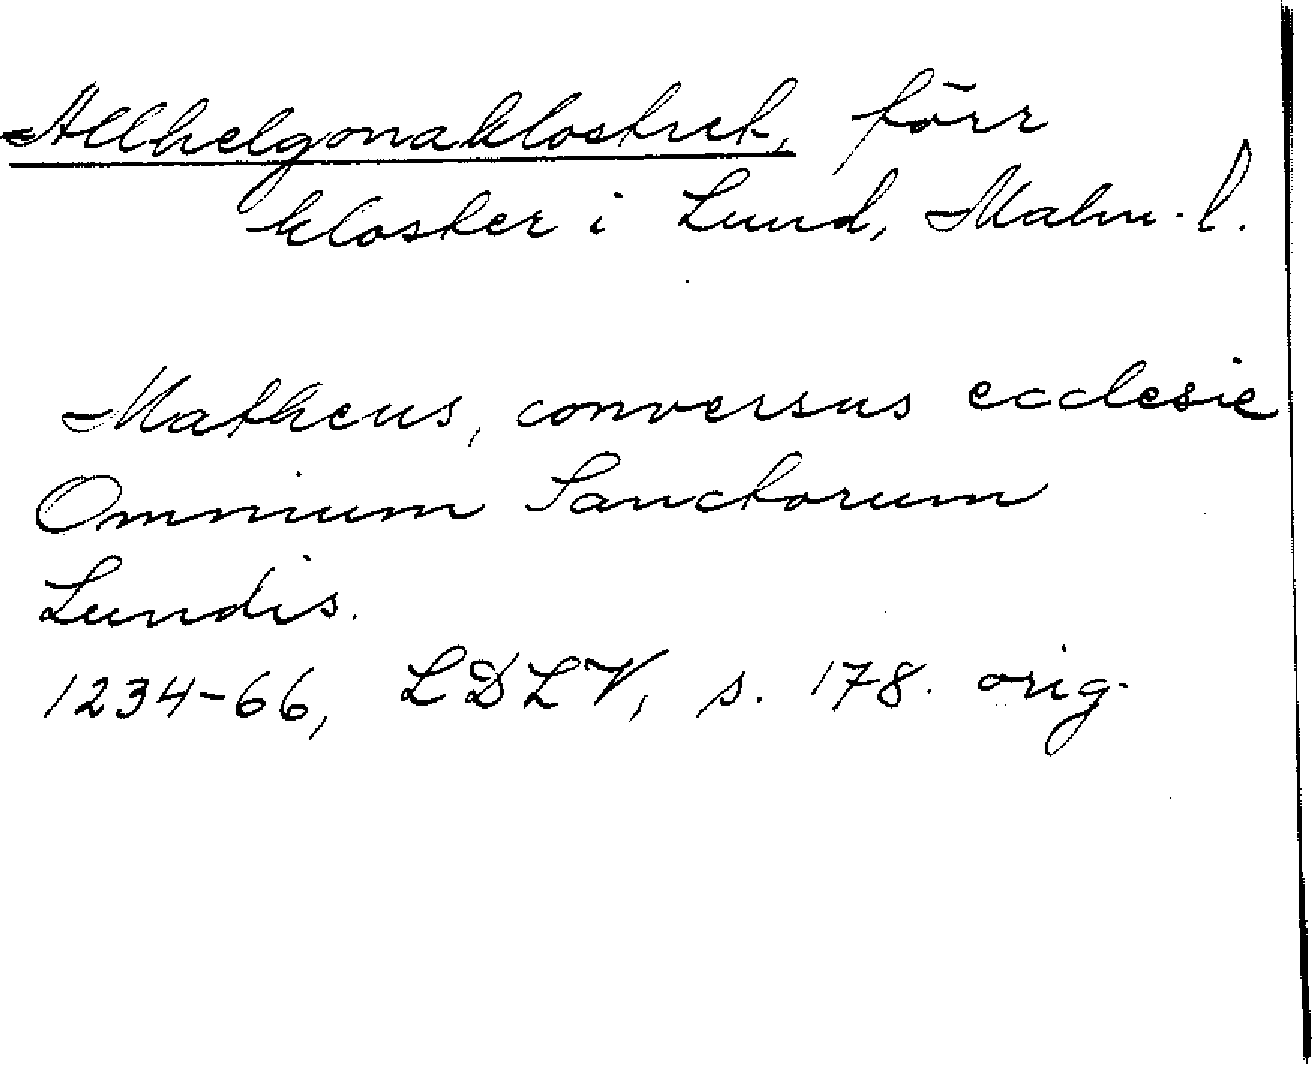 Allhelgonaklostret, förr
kloster i Lund, Malm. l.
Matheus, conversus ecclesie
Omnium Sanctorum
Lundis.
1234-66, LDLV, s. 178. orig.